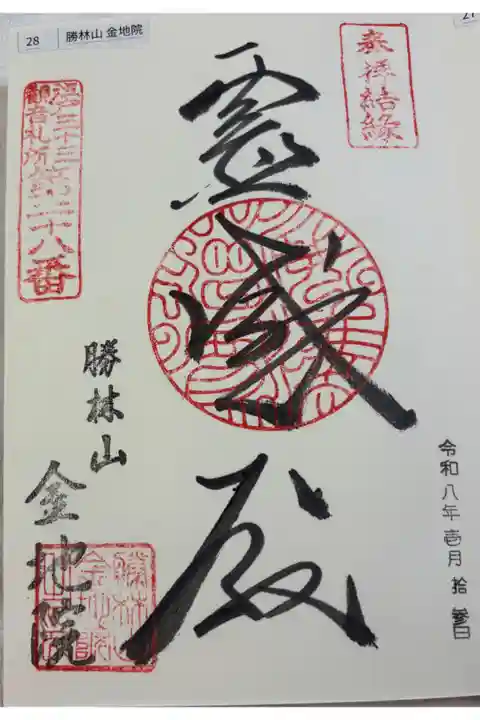 28 勝林山 金地院
奉拝結縁
江戸三十三
観音札所第二十八番
霊感殿
勝林山
金地院
令和八年壱月拾参日
勝林山
金地院